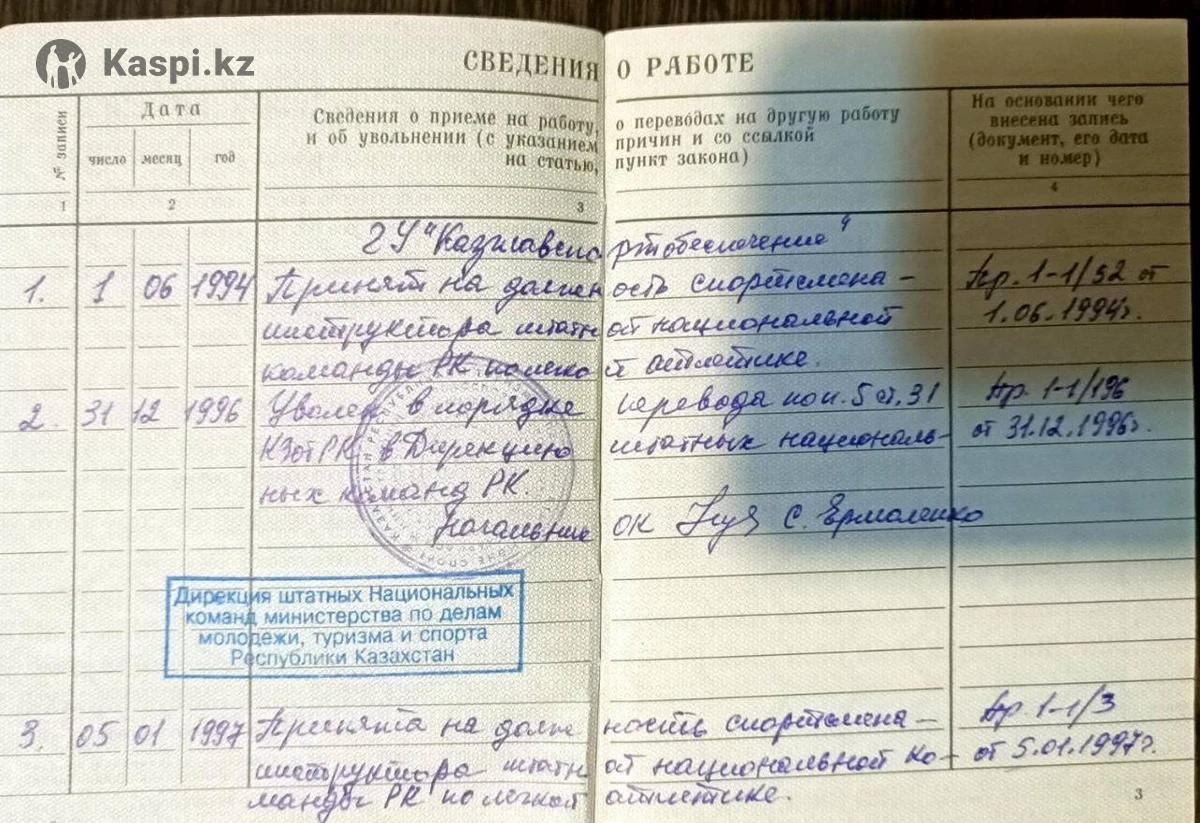 Kaspi.kz
СВЕДЕНИЯ О РАБОТЕ
№ записи
Дата
число месяц год
Сведения о приеме на работу, о переводах на другую работу
и об увольнении (с указанием причин и со ссылкой
на статью, пункт закона)
На основании чего
внесена запись
(документ, его дата
и номер)
1 2 3 4
ГУ "Казглавспортобеспечение"
1. 1 06 1994 Принят на должность спортсмена- Пр. 1-1/52 от
инструктора штатной национальной 1.06.1994г.
команды РК по легкой атлетике.
2. 31 12 1996 Уволен в порядке перевода по п. 5 ст. 31 Пр. 1-1/196
КЗоТ РК в Дирекцию штатных националь- от 31.12.1996г.
ных команд РК.
Начальник ОК С. Ермоленко
Дирекция штатных Национальных
команд министерства по делам
молодежи, туризма и спорта
Республики Казахстан
3. 05 01 1997 Принята на должность спортсмена- Пр. 1-1/3
инструктора штатной национальной ко- от 5.01.1997г.
манды РК по легкой атлетике.
3